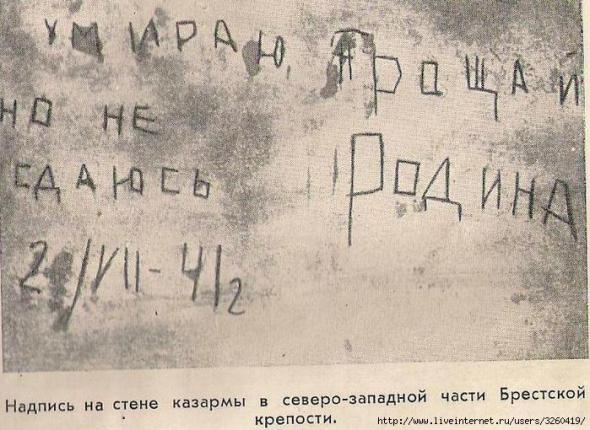 УМИРАЮ,
НО НЕ
СДАЮСЬ
20/VII-41г
ПРОЩАЙ
РОДИНА
Надпись на стене казармы в северо-западной части Брестской
крепости.
http://www.liveinternet.ru/users/3260419/